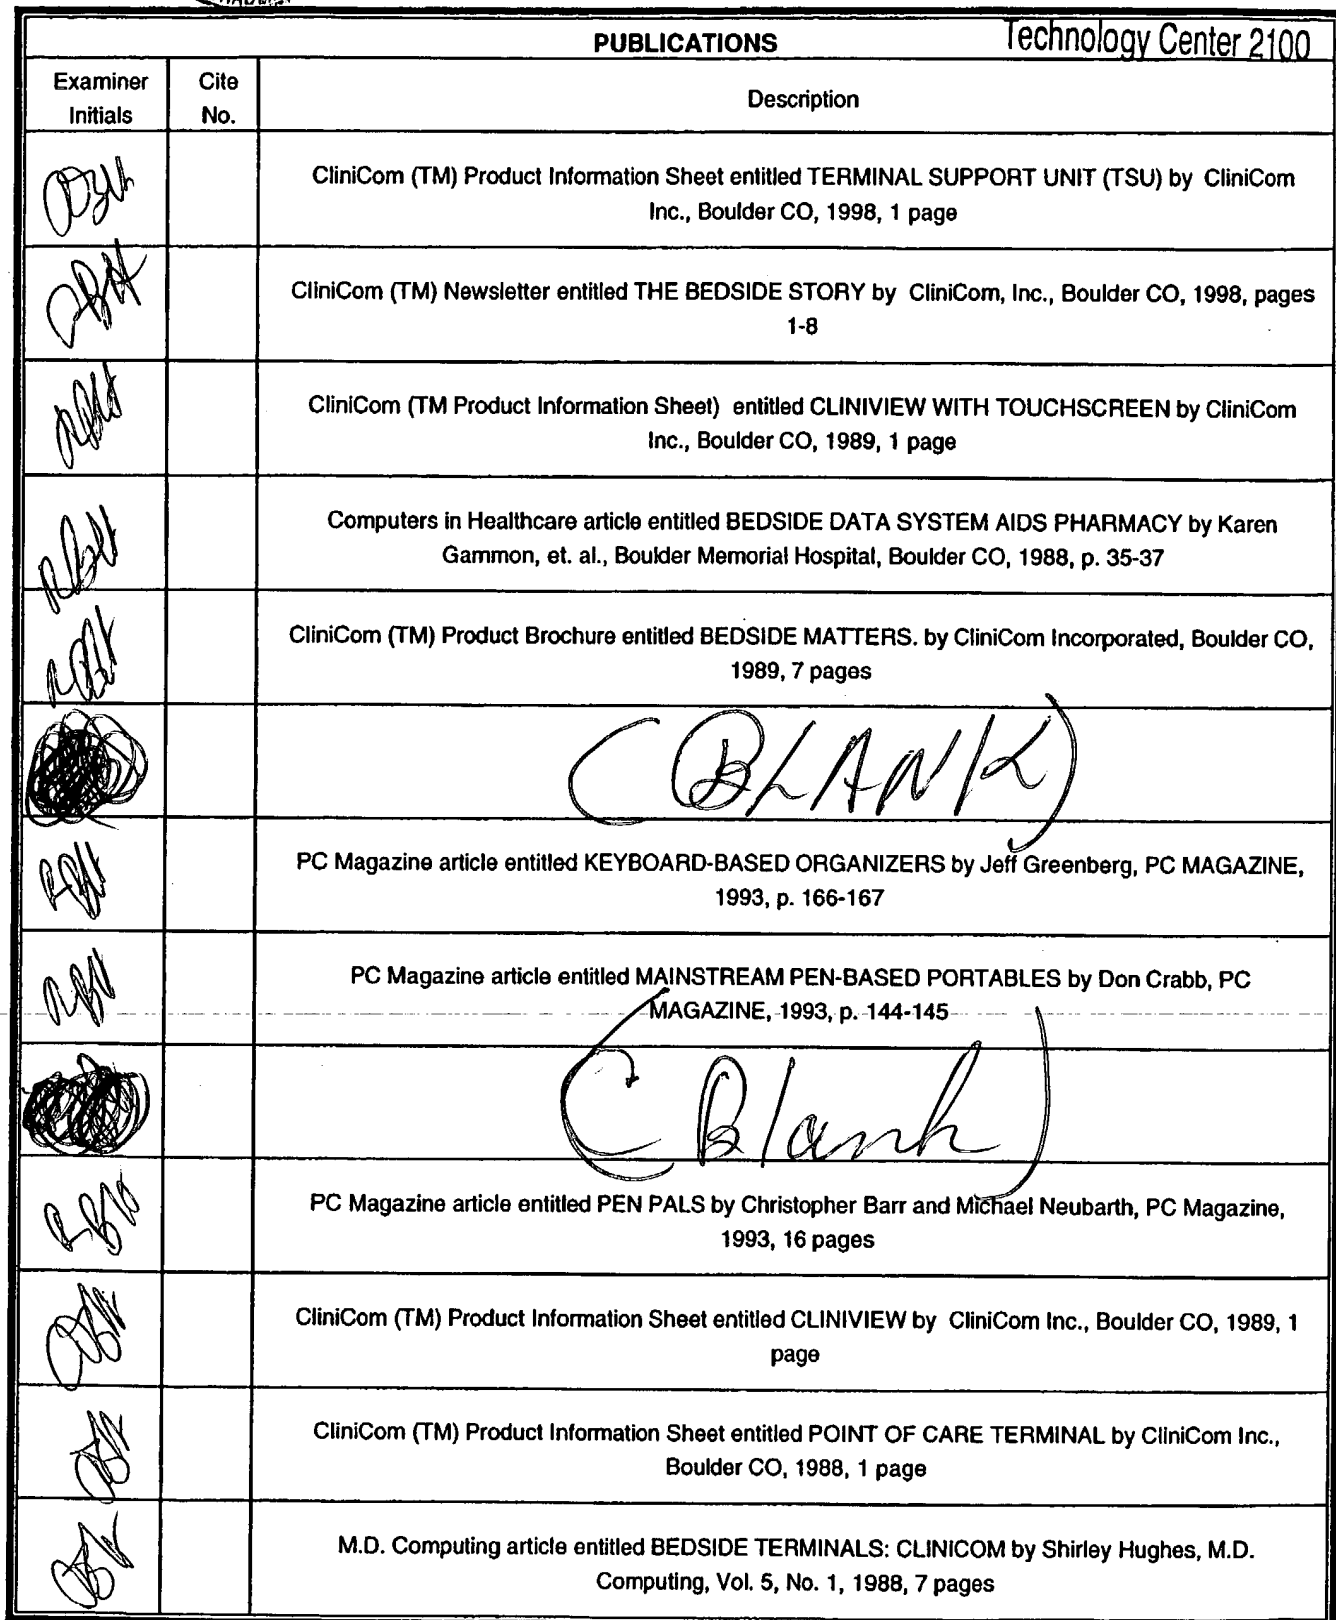 PUBLICATIONS
Technology Center 2100
Examiner Initials
Cite No.
Description
CliniCom (TM) Product Information Sheet entitled TERMINAL SUPPORT UNIT (TSU) by CliniCom
Inc., Boulder CO, 1998, 1 page
CliniCom (TM) Newsletter entitled THE BEDSIDE STORY by CliniCom, Inc., Boulder CO, 1998, pages
1-8
CliniCom (TM Product Information Sheet) entitled CLINIVIEW WITH TOUCHSCREEN by CliniCom
Inc., Boulder CO, 1989, 1 page
Computers in Healthcare article entitled BEDSIDE DATA SYSTEM AIDS PHARMACY by Karen
Gammon, et. al., Boulder Memorial Hospital, Boulder CO, 1988, p. 35-37
CliniCom (TM) Product Brochure entitled BEDSIDE MATTERS. by CliniCom Incorporated, Boulder CO,
1989, 7 pages
(BLANK)
PC Magazine article entitled KEYBOARD-BASED ORGANIZERS by Jeff Greenberg, PC MAGAZINE,
1993, p. 166-167
PC Magazine article entitled MAINSTREAM PEN-BASED PORTABLES by Don Crabb, PC
MAGAZINE, 1993, p. 144-145
(Blank)
PC Magazine article entitled PEN PALS by Christopher Barr and Michael Neubarth, PC Magazine,
1993, 16 pages
CliniCom (TM) Product Information Sheet entitled CLINIVIEW by CliniCom Inc., Boulder CO, 1989, 1
page
CliniCom (TM) Product Information Sheet entitled POINT OF CARE TERMINAL by CliniCom Inc.,
Boulder CO, 1988, 1 page
M.D. Computing article entitled BEDSIDE TERMINALS: CLINICOM by Shirley Hughes, M.D.
Computing, Vol. 5, No. 1, 1988, 7 pages